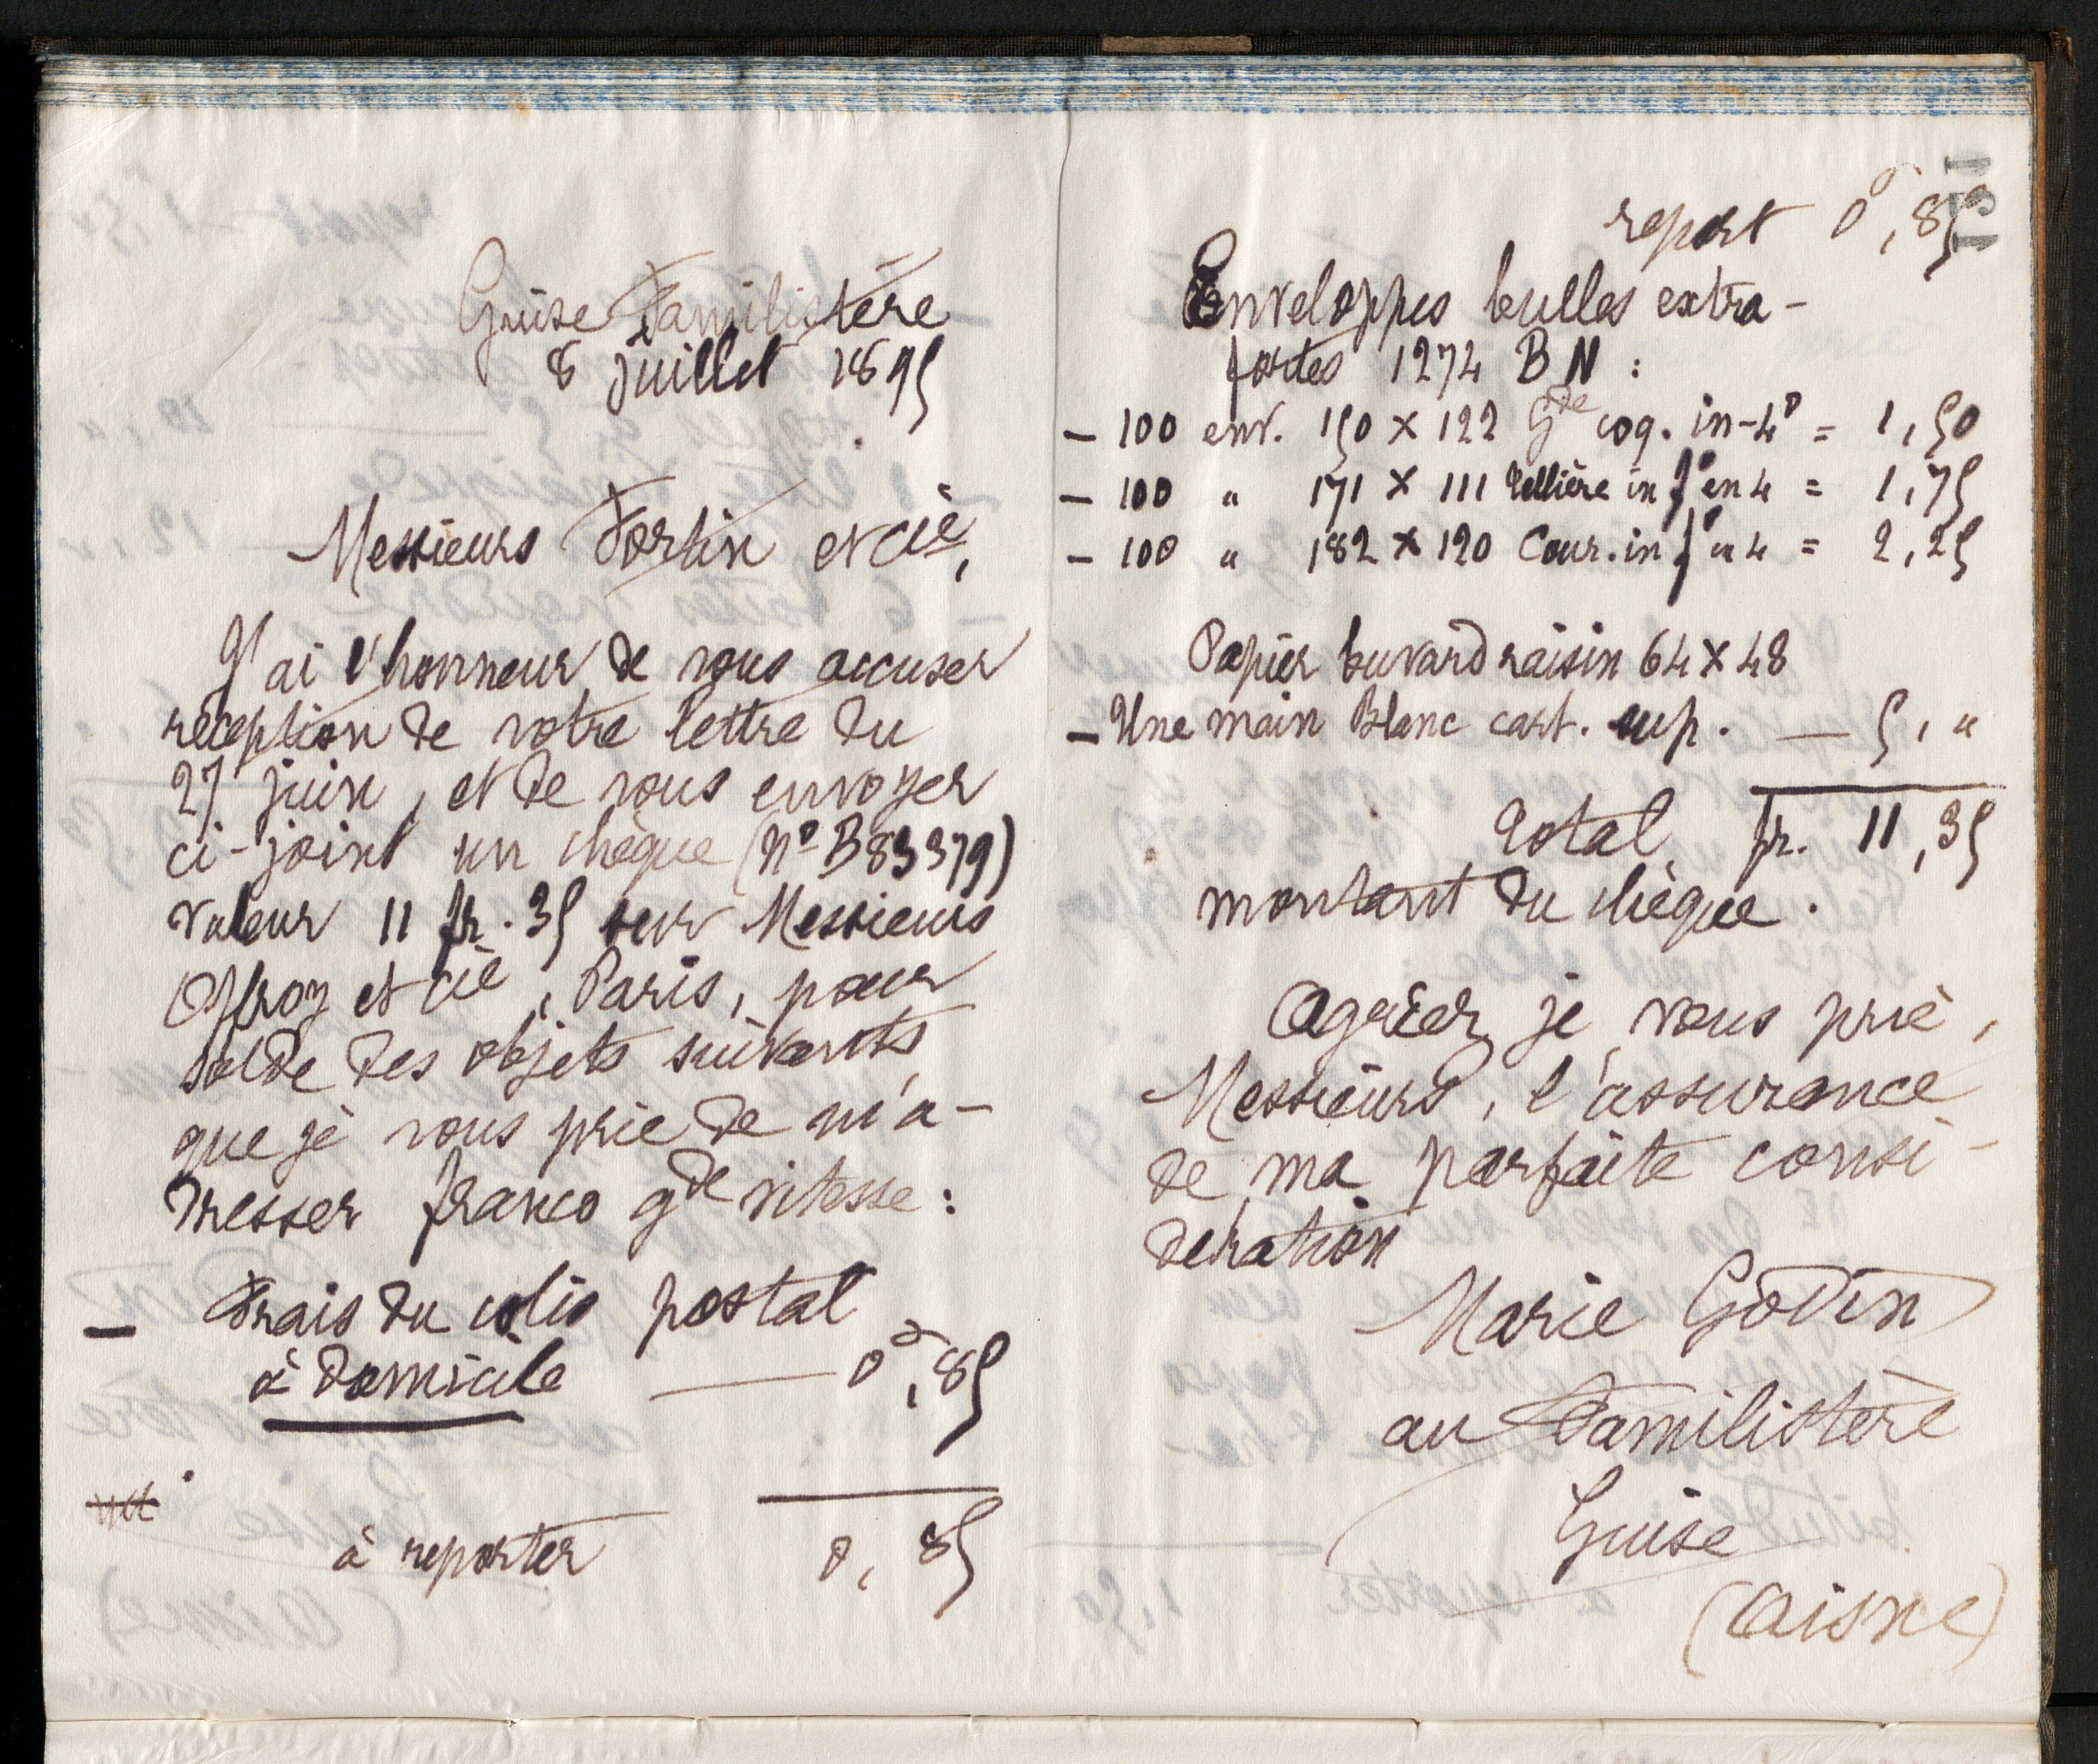 Guise Familistère
8 juillet 1895
Messieurs Fortin et cie,
J'ai l'honneur de vous accuser
réception de votre lettre du
27 juin, et de vous envoyer
ci-joint un chèque (No B83379)
valeur 11 fr. 35 sur Messieurs
Offroy et cie, Paris, pour
solde des objets suivants,
que je vous prie de m'a-
dresser franco gde vitesse :
- Frais du colis postal
à domicile — 0f,85
à reporter 0,85
131
report 0f,85
Enveloppes bulles extra-
fortes 1274 BN :
- 100 env. 150 x 122 Gde coq. in-4o = 1,50
- 100 " 171 x 111 Tellière in fo en 4 = 1,75
- 100 " 182 x 120 Cour. in fo " 4 = 2,25
Papier buvard raisin 64 x 48
- Une main Blanc cart. sup. — 5, "
Total fr. 11,35
montant du chèque.
Agréer, je vous prie,
Messieurs, l'assurance
de ma parfaite consi-
dération
Marie Godin
au Familistère
Guise
(Aisne)